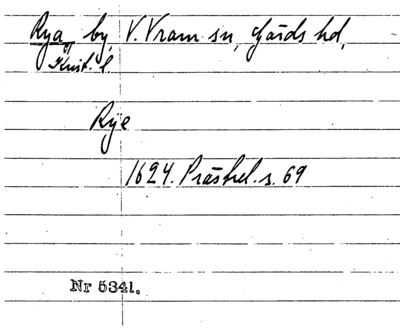 Rya by, V. Vram sn, Gärds hd,
Krist. l.
Rÿe
1624. Prästrel. s. 69
Nr 5341.